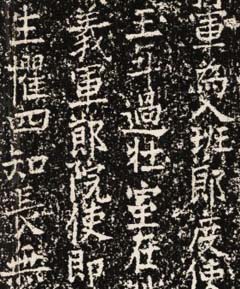 軍為入班郎度使
王斗過壮室在
義軍節院使即
生懼四知長無